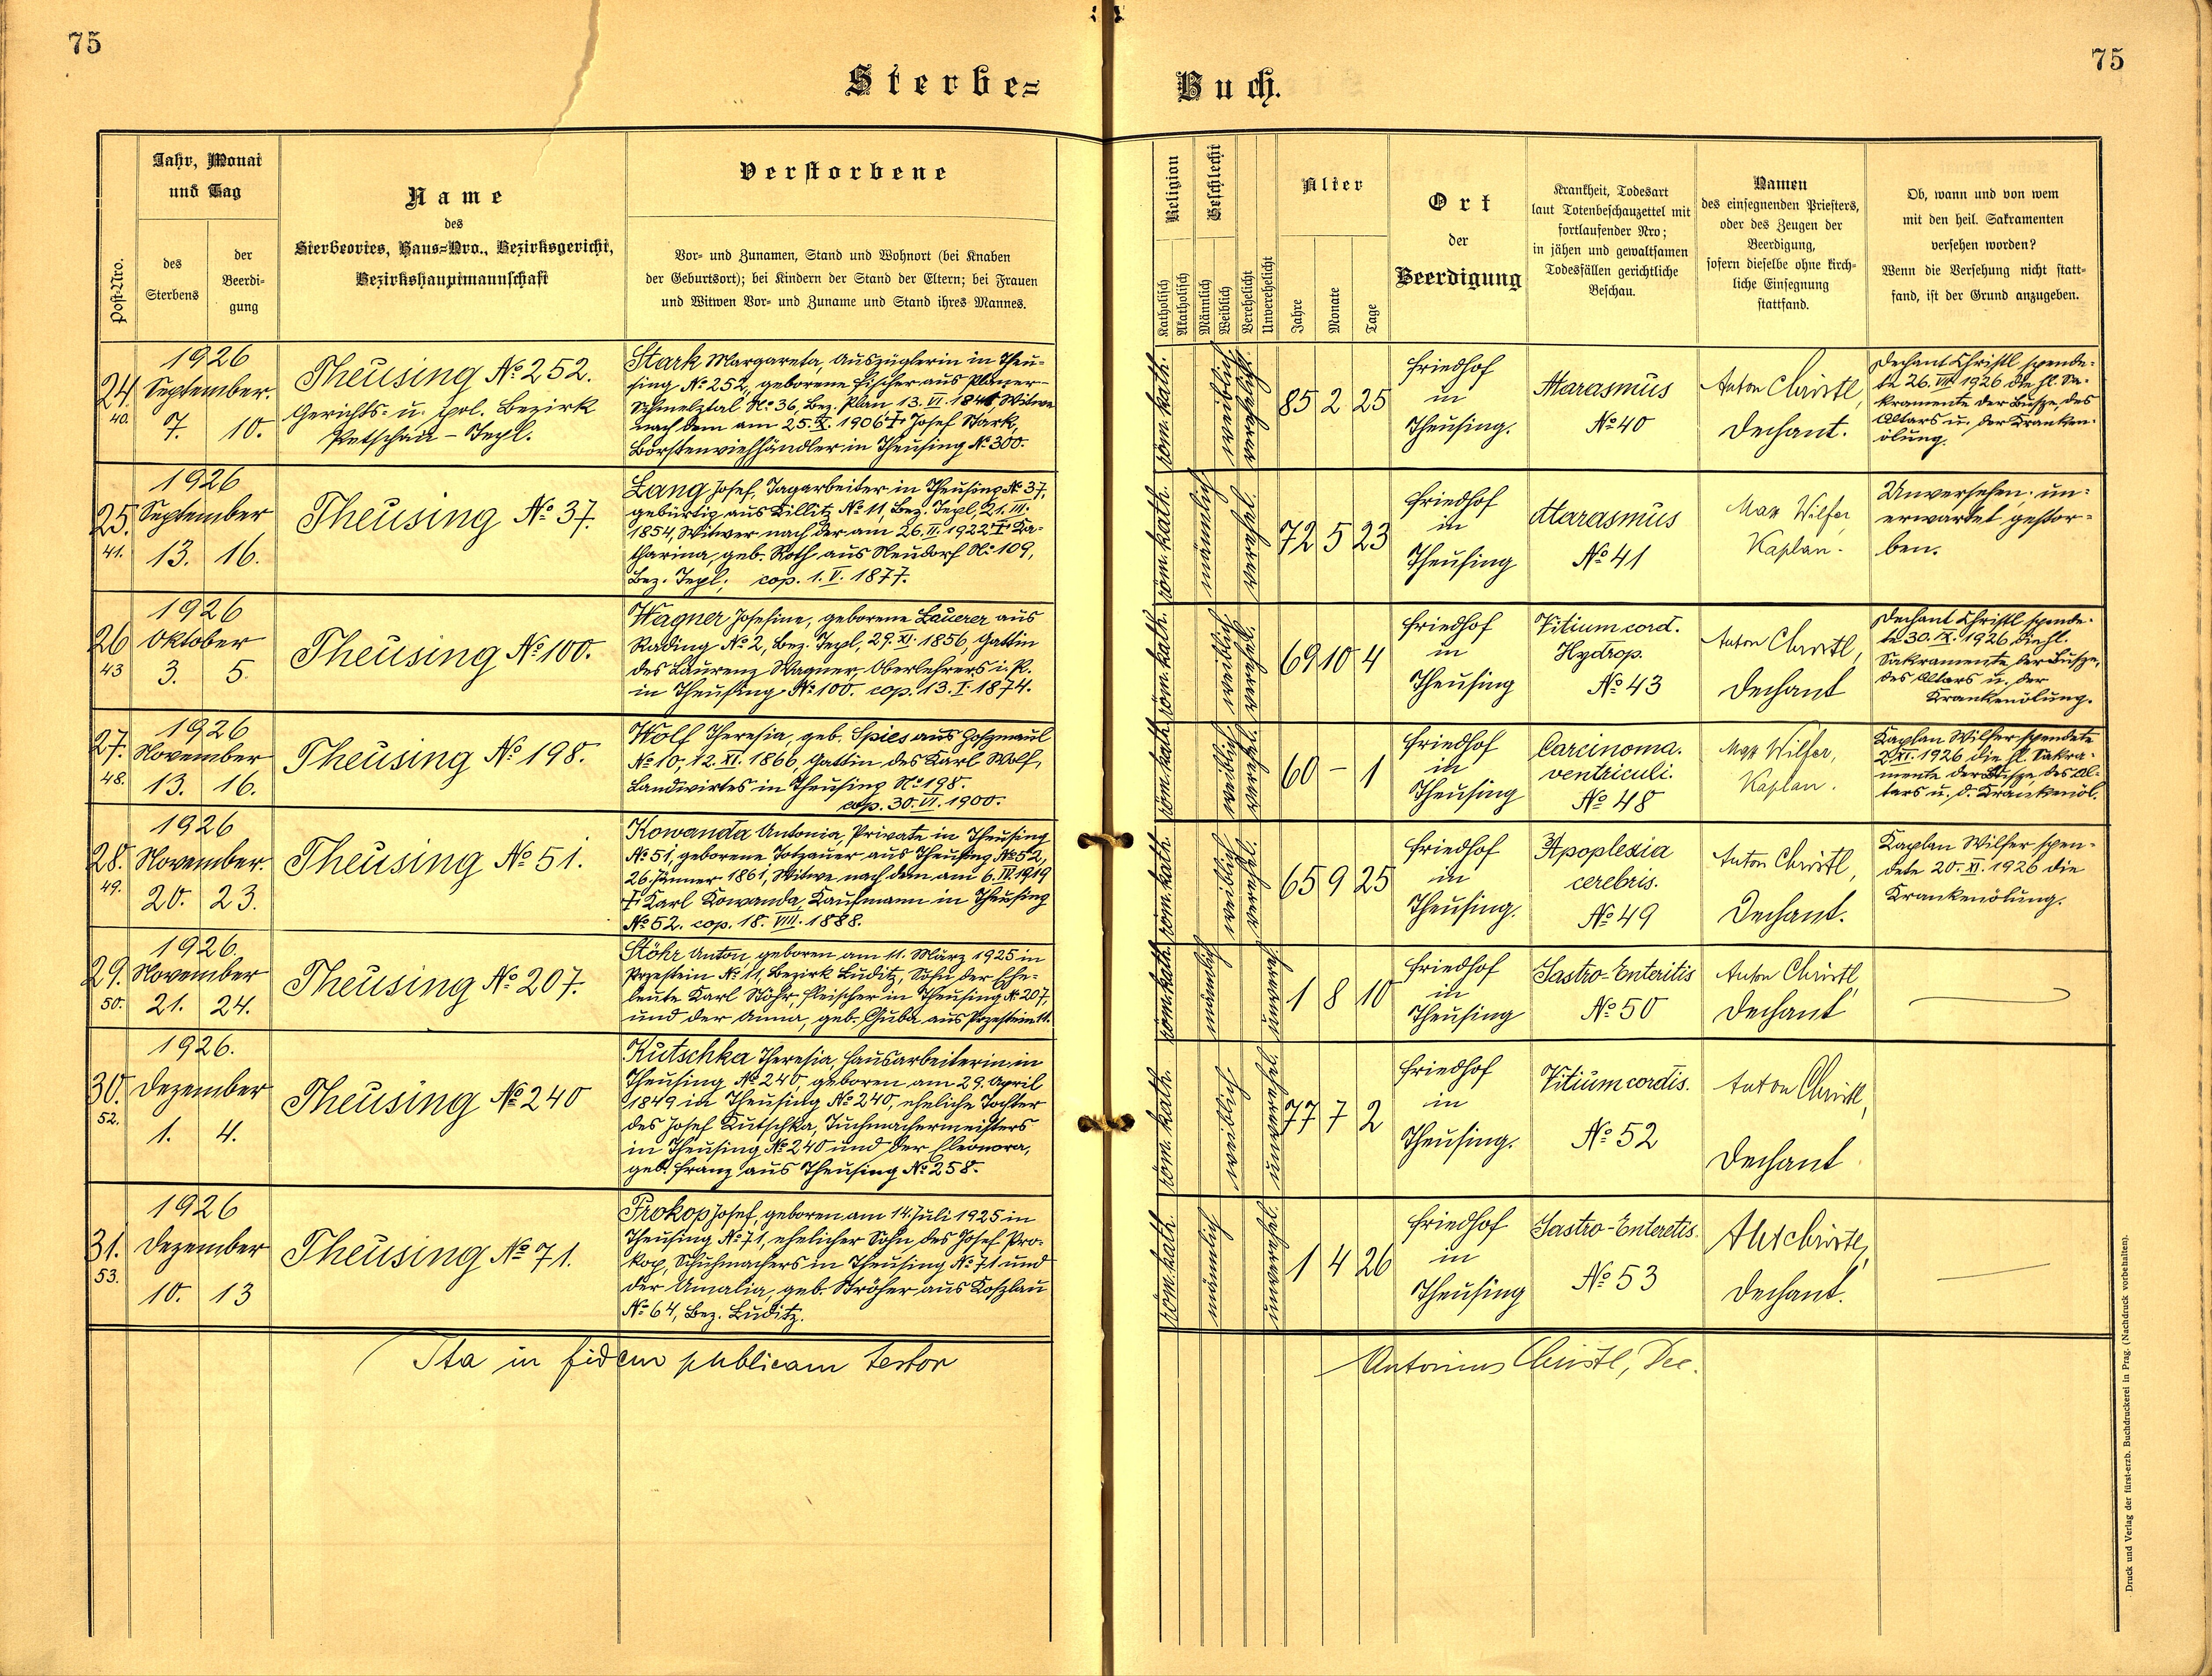 75
75
Sterbe=
Buch.
Post-Nro.
Jahr, Monat
und Tag
des
Sterbens
der
Beerdi-
gung
Name
des
Sterbeortes, Haus=Nro., Bezirksgericht,
Bezirkshauptmannschaft
Verstorbene
Vor- und Zunamen, Stand und Wohnort (bei Knaben
der Geburtsort); bei Kindern der Stand der Eltern; bei Frauen
und Witwen Vor- und Zuname und Stand ihres Mannes.
Religion
Katholisch
Akatholisch
Geschlecht
Männlich
Weiblich
Verehelicht
Unverehelicht
Alter
Jahre
Monate
Tage
Ort
der
Beerdigung
Krankheit, Todesart
laut Totenbeschauzettel mit
fortlaufender Nro;
in jähen und gewaltsamen
Todesfällen gerichtliche
Beschau.
Namen
des einsegnenden Priesters,
oder des Zeugen der
Beerdigung,
sofern dieselbe ohne kirch-
liche Einsegnung
stattfand.
Ob, wann und von wem
mit den heil. Sakramenten
versehen worden?
Wenn die Versehung nicht statt-
fand, ist der Grund anzugeben.
24
40.
1926
September.
7. 10.
Theusing No 252.
Gerichts- u. pol. Bezirk
Petschau - Tepl.
Stark Margareta, Auszüglerin in Theu-
sing No 252, geborene Fischer aus Planer-
Schmelztal No 36, Bez. Plan 13. VI. 1841 Witwe
nach dem am 25. X. 1906 † Josef Stark,
Borstenviehhändler in Theusing No 300.
röm. kath.
weiblich
verehelicht.
85 2 25
Friedhof
in
Theusing.
Marasmus
No 40
Anton Christl,
Dechant.
Dechant Christl spende-
te 26. VIII. 1926 die hl. Sa-
kramente der Busze, des
Altars u. der Kranken-
ölung.
25.
41.
1926
September
13. 16.
Theusing No 37.
Lang Josef, Tagarbeiter in Theusing No 37,
gebürtig aus Killitz No 11, Bez. Tepl, 21. III.
1854, Witwer nach der am 26. II. 1922 † Ka-
tharina, geb. Roth aus Neudorf No 109,
Bez. Tepl. cop. 1. V. 1877.
röm. kath.
männlich
verehel.
72 5 23
Friedhof
in
Theusing
Marasmus
No 41
Max Wilfer
Kaplan.
Unversehen, un-
erwartet gestor-
ben.
26
43
1926
Oktober
3. 5.
Theusing No 100.
Wagner Josefine, geborene Lauerer aus
Rading No 2, Bez. Tepl, 29. XI. 1856, Gattin
des Laurenz Wagner, Oberlehrers i. P.
in Theusing No 100. cop. 13. I. 1874.
röm. kath.
weiblich
verehel.
69 10 4
Friedhof
in
Theusing
Vitium cord.
Hydrop.
No 43
Anton Christl,
Dechant
Dechant Christl spende-
te 30. IX. 1926 die hl.
Sakramente der Busze,
des Altars u. der
Krankenölung.
27.
48.
1926
November
13. 16.
Theusing No 198.
Wolf Theresia, geb. Spies aus Goszmaul
No 10, 12. XI. 1866, Gattin des Karl Wolf,
Landwirtes in Theusing No 198.
cop. 30. VI. 1900.
röm. kath.
weiblich
verehel.
60 - 1
Friedhof
in
Theusing
Carcinoma.
ventriculi.
No 48
Max Wilfer,
Kaplan.
Kaplan Wilfer spendete
2. XI. 1926 die hl. Sakra-
mente der Busze, des Al-
tars u. d. Krankenöl.
28.
49.
1926
November.
20. 23.
Theusing No 51.
Kowanda Antonia, Private in Theusing
No 51, geborene Totzauer aus Theusing No 52,
26. Jänner 1861, Witwe nach dem am 6. IV. 1919
† Karl Kowanda, Kaufmann in Theusing
No 52. cop. 18. VIII. 1888.
röm. kath.
weiblich
verehel.
65 9 25
Friedhof
in
Theusing.
Apoplexia
cerebris.
No 49
Anton Christl,
Dechant.
Kaplan Wilfer spen-
dete 20. XI. 1926 die
Krankenölung.
29.
50.
1926.
November
21. 24.
Theusing No 207.
Stöhr Anton, geboren am 11. März 1925 in
Przestein No 11, Bezirk Luditz, Sohn der Ehe-
leute Karl Stöhr, Fleischer in Theusing No 207,
und der Anna, geb. Guba aus Przestein 11.
röm. kath.
männlich
unvereh.
1 8 10
Friedhof
in
Theusing
Gastro-Enteritis
No 50
Anton Christl,
Dechant
30.
52.
1926.
Dezember
1. 4.
Theusing No 240
Kutschka Theresia, Hausarbeiterin in
Theusing No 240, geboren am 29. April
1849 in Theusing No 240, eheliche Tochter
des Josef Kutschka, Tuchmachermeisters
in Theusing No 240 und der Eleonora,
geb. Franz aus Theusing No 258.
röm. kath.
weiblich
unverehel.
77 7 2
Friedhof
in
Theusing.
Vitium cordis.
No 52
Anton Christl,
Dechant
31.
53.
1926
Dezember
10. 13
Theusing No 71.
Prokop Josef, geboren am 14. Juli 1925 in
Theusing No 71, ehelicher Sohn des Josef Pro-
kop, Schuhmachers in Theusing No 71 und
der Amalia, geb. Ströher aus Koszlau
No 64, Bez. Luditz.
röm. kath.
männlich
unverehel.
1 4 26
Friedhof
in
Theusing
Gastro-Enteretis.
No 53
Ant Christl,
Dechant.
Ita in fidem publicam testor
Antonius Christl, Dec.
Druck und Verlag der fürst-erzb. Buchdruckerei in Prag. (Nachdruck vorbehalten).